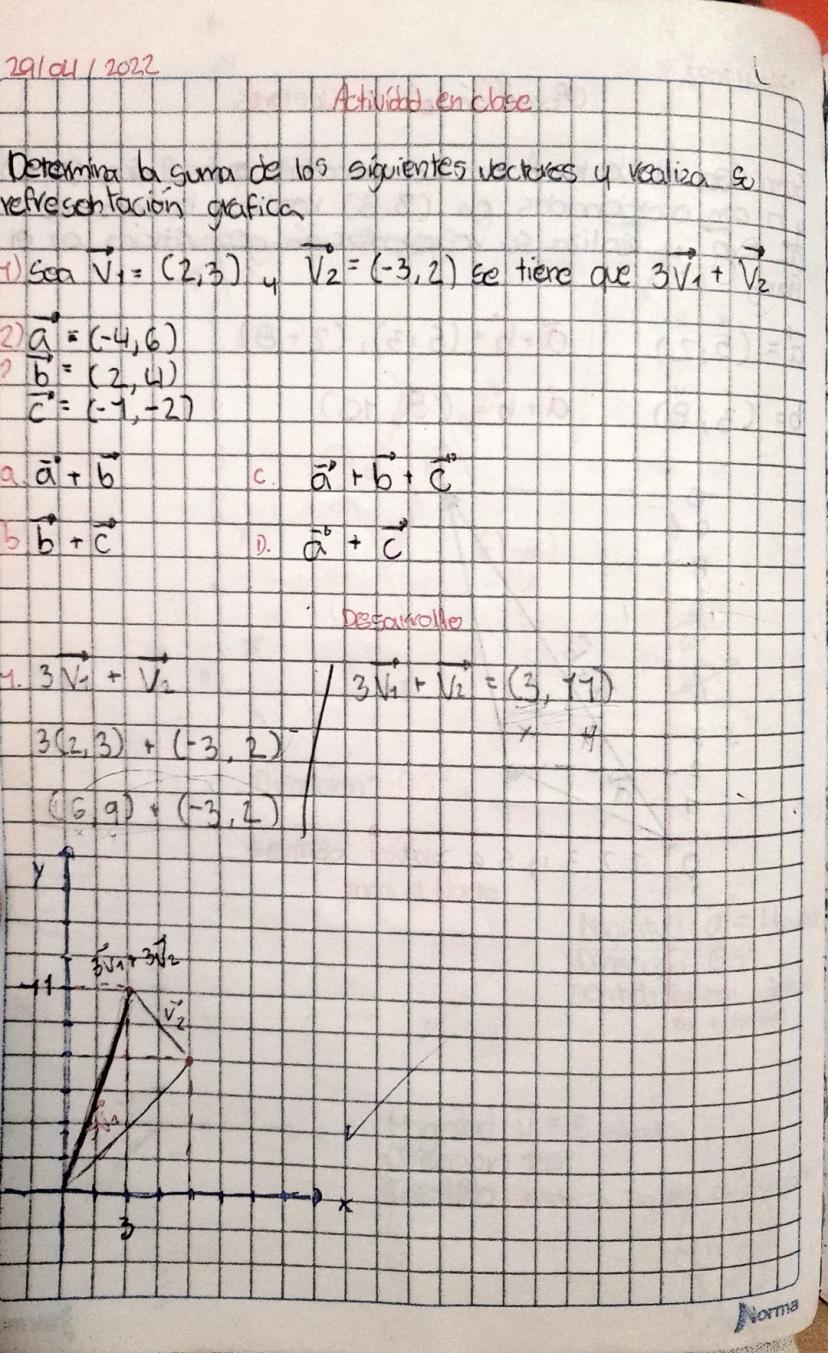 29/04/2022
Actividad en clase
Determina la suma de los siguientes vectores y realiza su
representación grafica
1) Sea V₁ = (2,3) y V₂ = (-3,2) se tiene que 3V₁ + V₂
2) a = (-4,6)
b = (2,4)
c = (-1,-2)
a. a + b c. a + b + c
b b + c D. a + c
Desarrollo
1. 3V₁ + V₂ 3V₁ + V₂ = (3, 11)
3(2,3) + (-3,2) x y
(6,9) + (-3,2)
y
3V₁+3V₂
11
V₂
x
3
Norma